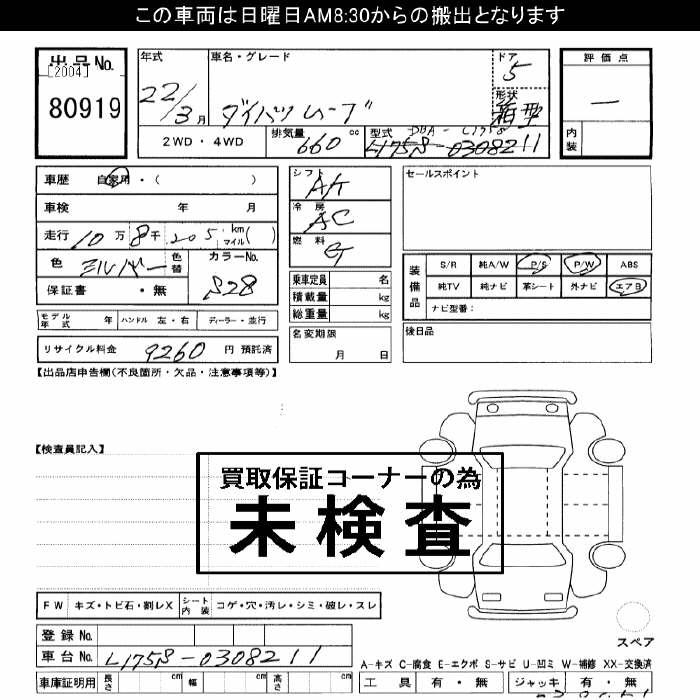 この車両は日曜日AM8:30からの搬出となります
出品No.
[2004]
80919
年式
22/3月
車名・グレード
ダイハツムーブ
ドア
5
形状
箱型
評価点
―
内装
2WD・4WD
排気量
660cc
型式
DBA-L175S
L175S-0308211
車歴 自家用・( )
車検 年 月
走行 10万8千205km
マイル( )
色 シルバー
色替
カラーNo.
S28
保証書 ・無
シフト
AT
冷房
AC
燃料
G
乗車定員 名
積載量 kg
総重量 kg
名変期限
月 日
セールスポイント
装備品
S/R 純A/W P/S P/W ABS
純TV 純ナビ 革シート 外ナビ エアB
ナビ型番:
後日品
モデル年式 年 ハンドル 左・右 ディーラー・並行
リサイクル料金 9260 円 預託済
【出品店申告欄(不良箇所・欠品・注意事項等)】
【検査員記入】
買取保証コーナーの為
未検査
FW キズ・トビ石・割レX
シート内装 コゲ・穴・汚レ・シミ・破レ・スレ
登録No.
車台No. L175S-0308211
車庫証明用 長さ cm 幅 cm 高さ cm
スペア
A-キズ C-腐食 E-エクボ S-サビ U-凹ミ W-補修 XX-交換済
工具 有・無 ジャッキ 有・無